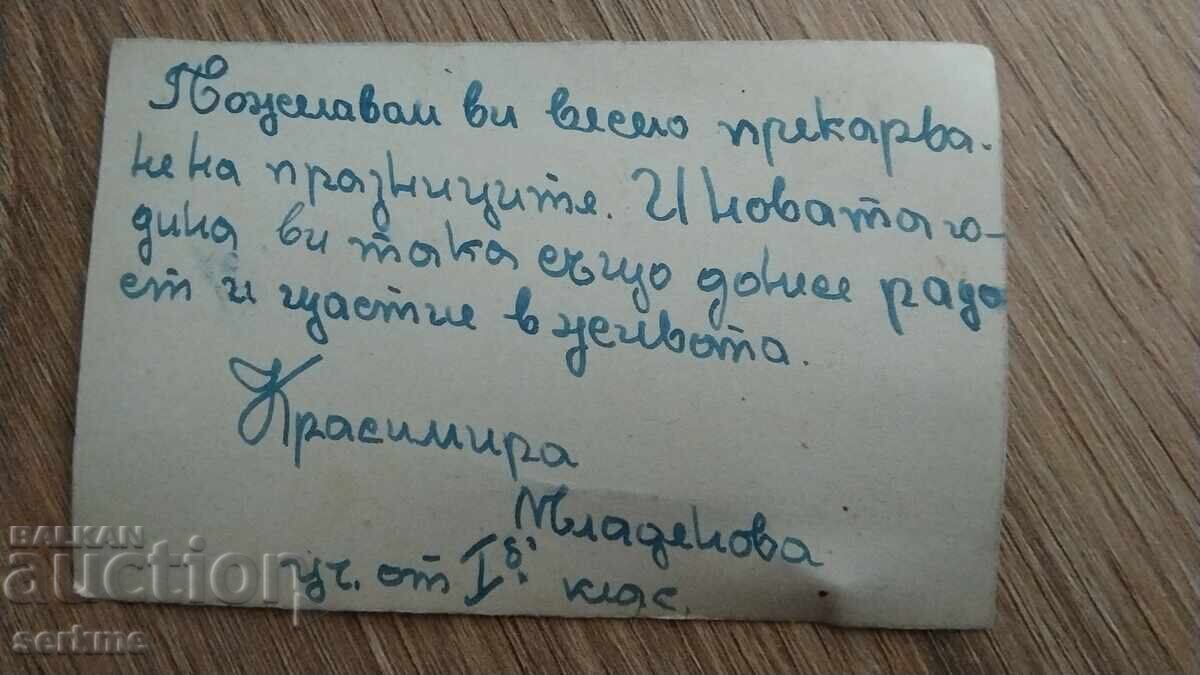 Пожелавам ви весело прекарва-
не на празниците. И новата го-
дина ви така също донесе радо
ст и щастие в живота.
Красимира
Младенова
уч. от I б. клас.
BALKAN
auction
serkme